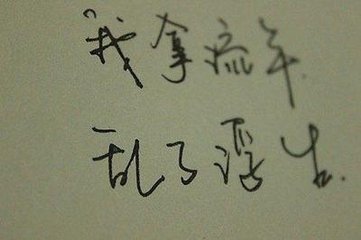 我拿流年
乱了浮生.